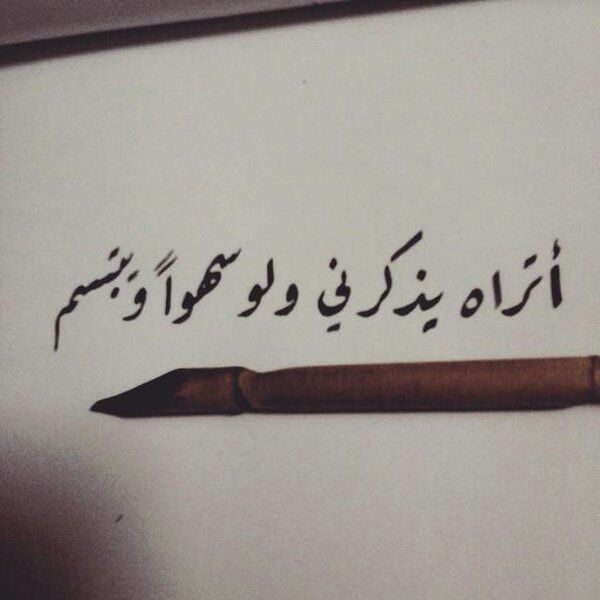 أتراه يذكرني ولو سهواً وَيبتسم